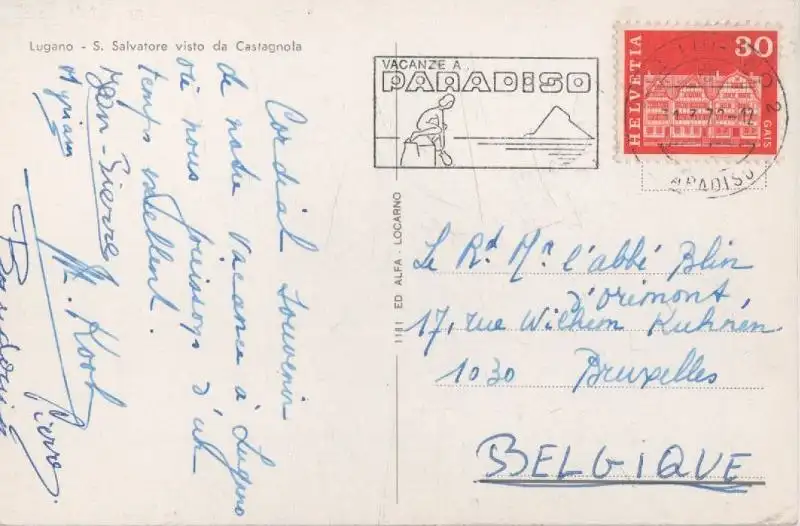 Lugano - S. Salvatore visto da Castagnola
VACANZE A
PARADISO
HELVETIA
30
GAIS
PARADISO
1181 ED ALFA - LOCARNO
Cordial souvenir
de notre vacance à Lugano
où nous jouissons d'un
temps excellent.
Jean-Pierre
Myriam
M. Koob
Pierre
Baudouin
Le Rd Mr l'abbé Blin
d'orimont
17, rue Wilhem Kuhnén
1030 Bruxelles
BELGIQUE